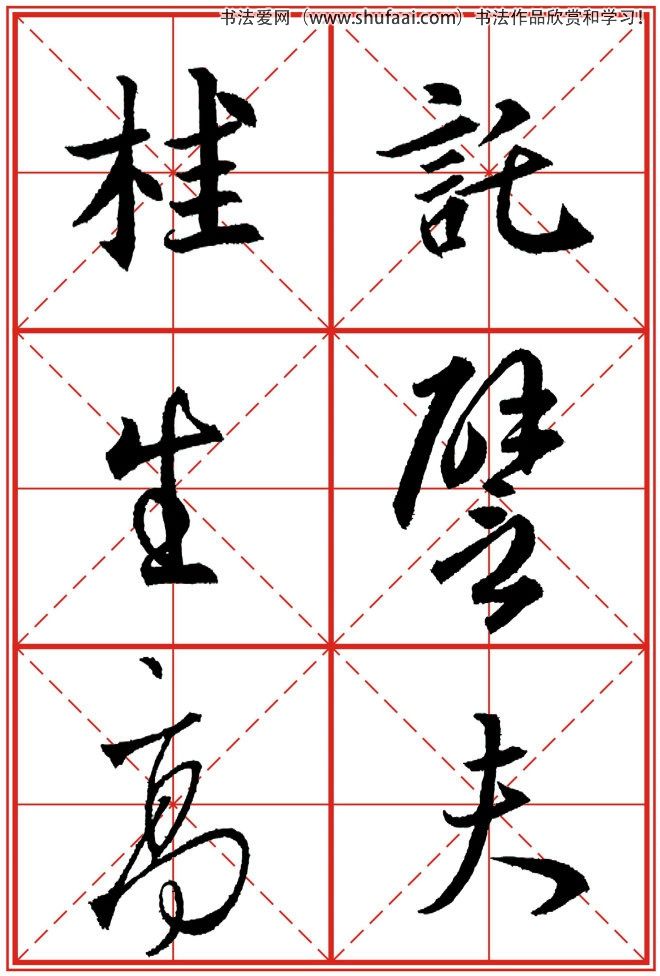 书法爱网（www.shufaai.com）书法作品欣赏和学习！
託譬夫
桂生高